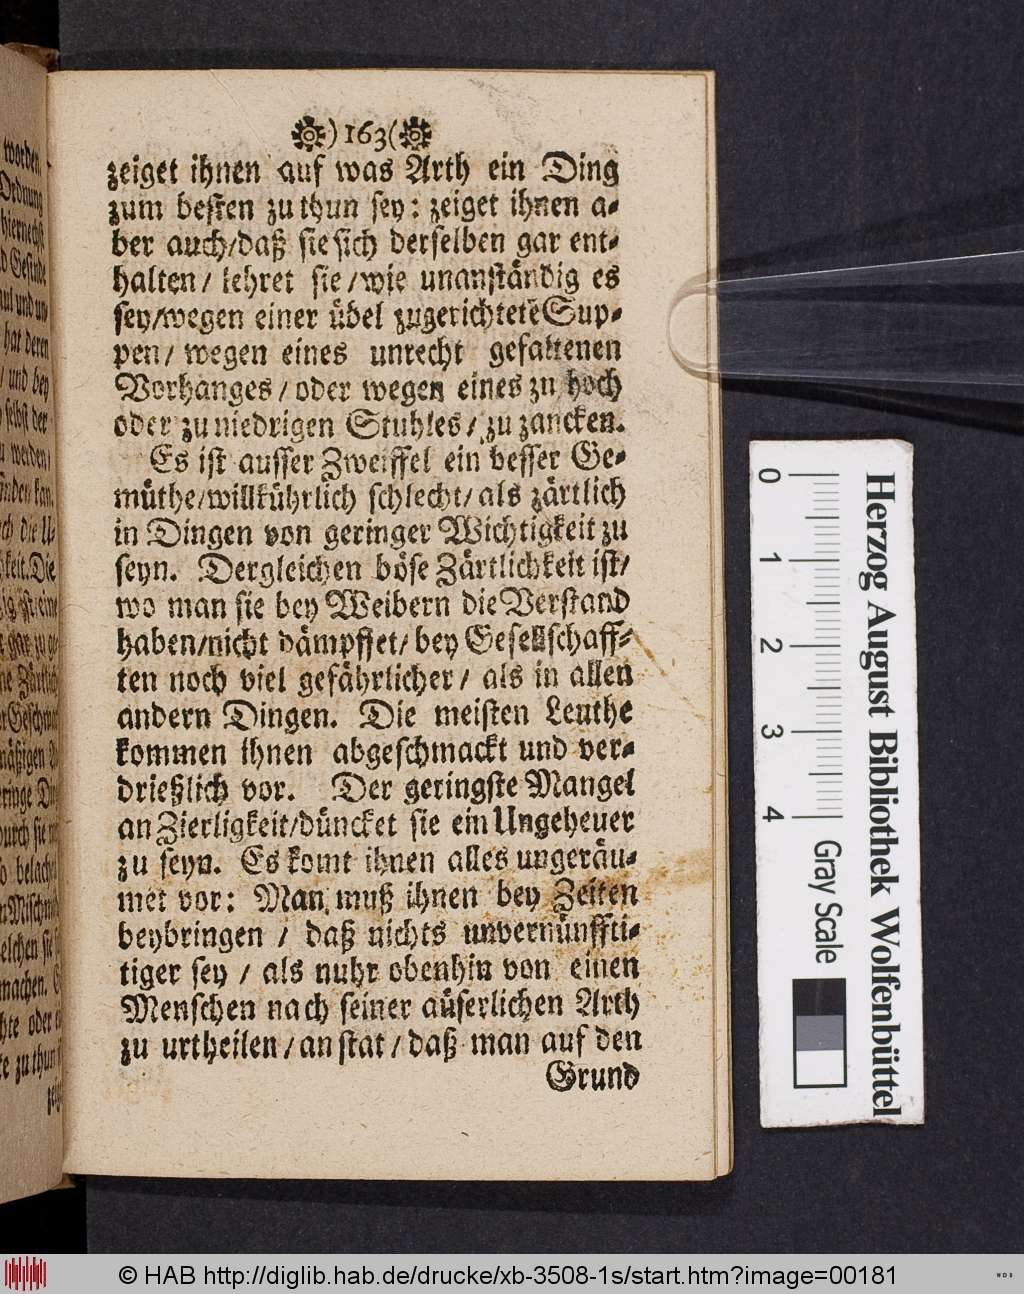 )163(
zeiget ihnen auf was Arth ein Ding
zum besten zu thun sey: zeiget ihnen a-
ber auch/daß sie sich derselben gar ent-
halten/ lehret sie/wie unanständig es
sey/wegen einer übel zugerichtete Sup-
pen/ wegen eines unrecht gefaltenen
Vorhanges/ oder wegen eines zu hoch
oder zu niedrigen Stuhles/ zu zancken.
Es ist ausser Zweiffel ein besser Ge-
müthe/willkührlich schlecht/als zärtlich
in Dingen von geringer Wichtigkeit zu
seyn. Dergleichen böse Zärtlichkeit ist/
wo man sie bey Weibern die Verstand
haben/nicht dämpffet/bey Gesellschaff-
ten noch viel gefährlicher/ als in allen
andern Dingen. Die meisten Leuthe
kommen ihnen abgeschmackt und ver-
drießlich vor. Der geringste Mangel
an Zierligkeit/düncket sie ein Ungeheuer
zu seyn. Es komt ihnen alles ungeräu-
met vor: Man muß ihnen bey Zeiten
beybringen / daß nichts unvernünffti-
tiger sey / als nuhr obenhin von einen
Menschen nach seiner aüserlichen Arth
zu urtheilen/an stat/daß man auf den
Grund
worden.
Ordnung
hiernechst
d Gesinde
aul und un-
hat deren
/ und bey
selbst der
u werden/
inden kan.
ch die U-
keit. Die
0 1 2 3 4
Gray Scale
Herzog August Bibliothek Wolfenbüttel
© HAB http://diglib.hab.de/drucke/xb-3508-1s/start.htm?image=00181